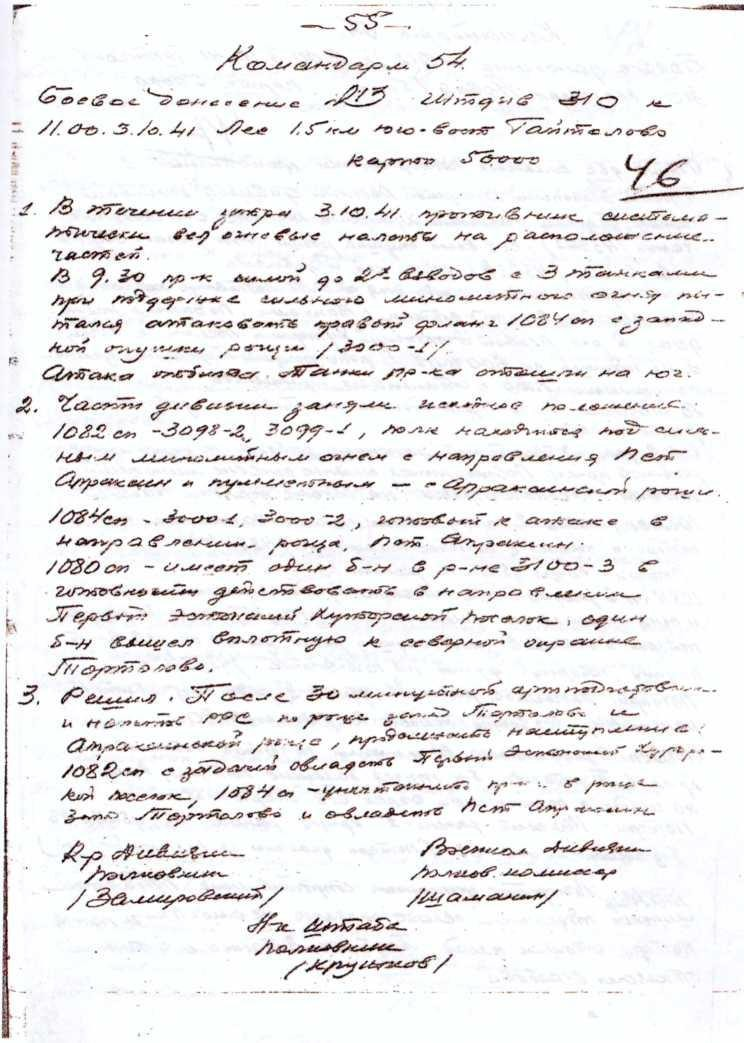 — 55 —
Командарм 54
Боевое донесение № 213 Штдив 310 к
11.00. 3.10.41 Лес 1.5 км юго-вост Гайтолово
карта 50000
46
1. В течении утра 3.10.41. противник система-
тически вел огневые налеты на расположение
частей.
В 9.30 пр-к силой до 2х взводов с 3 танками
при поддержке сильного минометного огня пы-
тался атаковать правый фланг 1084 сп с запад-
ной опушки рощи /3000-1/.
Атака отбита. Танки пр-ка отошли на юг.
2. Части дивизии заняли исходное положение:
1082 сп - 3098-2, 3099-1, полк находится под силь-
ным минометным огнем с направления Пст
Апраксин и пулеметным — с Апраксинской рощи.
1084 сп - 3000-1, 3000-2, готовый к атаке в
направлении, роща, Пст. Апраксин.
1080 сп - имеет один б-н в р-не 3100-3 в
готовности действовать в направлении
Первый Эстонский Хуторской Поселок, один
б-н вышел вплотную к северной окраине
Тортолово.
3. Решил. После 30 минутной артподготовки
и налетов РС по роще зап Тортолово и
Апраксинской роще, продолжать наступление:
1082 сп с задачей овладеть Первый Эстонский Хуторс-
кой поселок, 1084 сп - уничтожить пр-ка в роще
зап Тортолово и овладеть Пст Апраксин
К-р Дивизии Военком дивизии
полковник полков. комиссар
/Замировский/ /Шаманин/
Нк Штаба
полковник
/Крупнов/